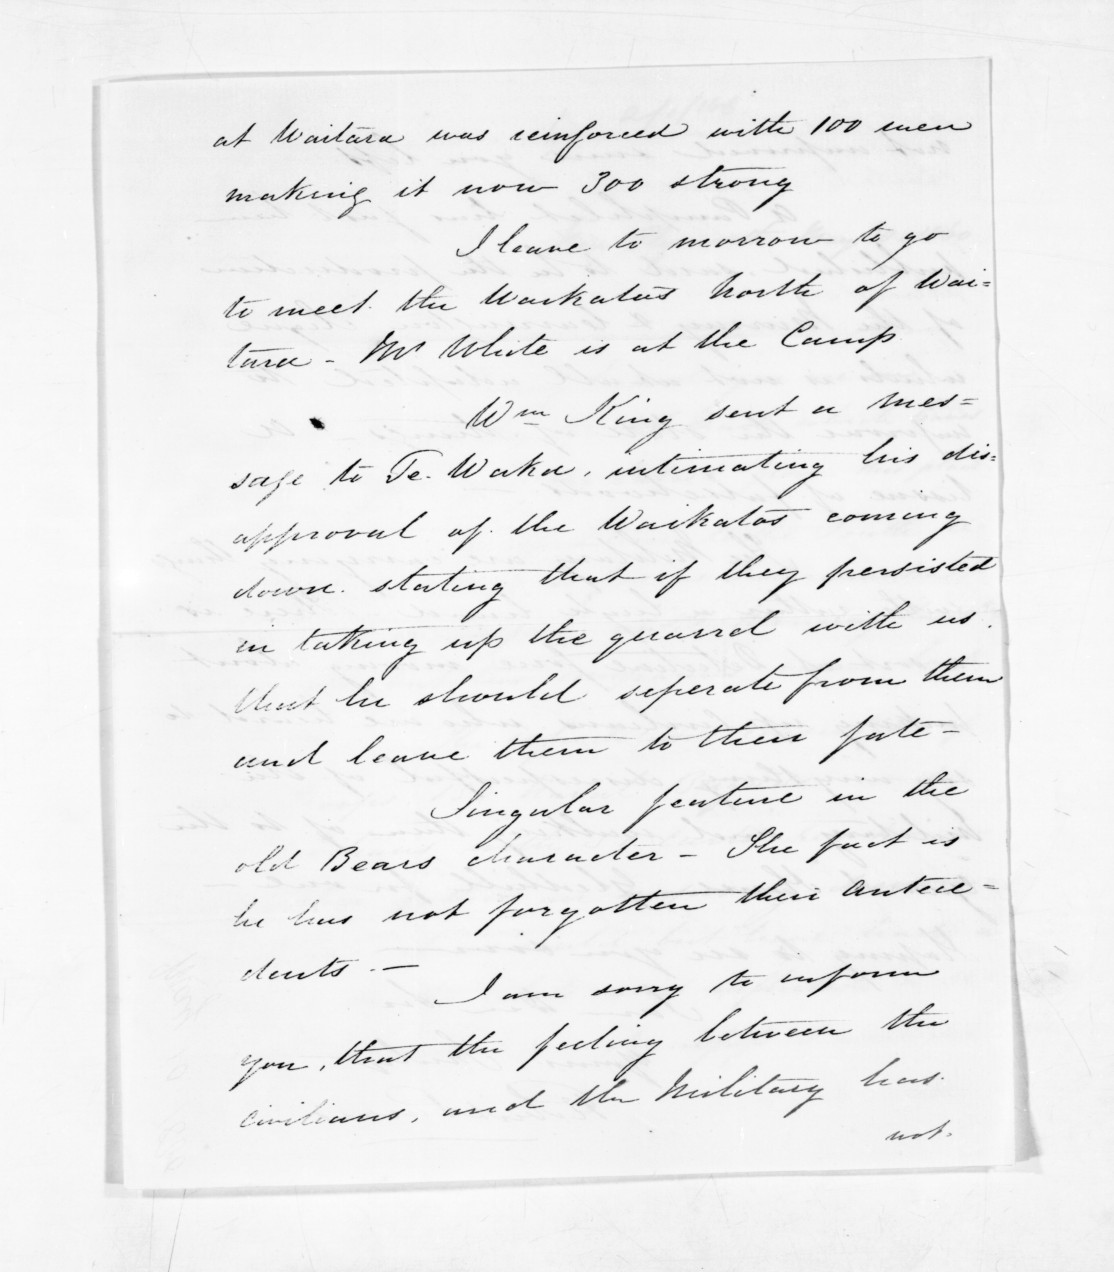 at Waitara was reinforced with 100 men
making it now 300 strong
I leave to morrow to go
to meet the Waikatos North of Wai=
tara - Mr White is at the Camp
Wm King sent a mes=
sage to Te Waka, intimating his dis=
approval of the Waikatos coming
down. stating that if they persisted
in taking up the quarrel with us.
that he should seperate from them
and leave them to their fate -
Singular feature in the
old Bears character - The fact is
he has not forgotten their antece=
dents. -
I am sorry to inform
you, that the feeling between the
civilians, and the Military has.
not.